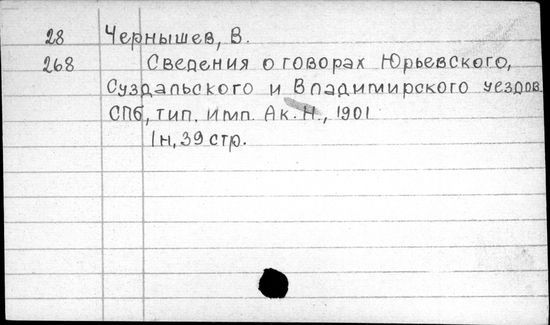 28 Чернышев, В.
268 Сведения о говорах Юрьевского,
Суздальского и Владимирского уездов
СПб, тип. имп. Ак. Н., 1901
1н, 39 стр.